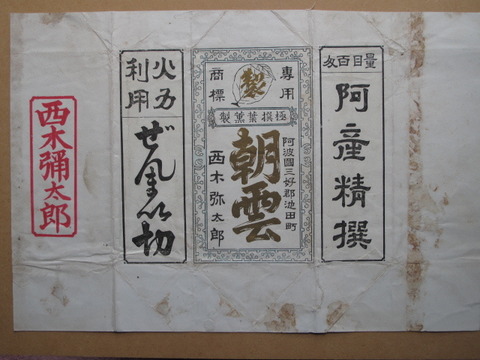 量目百匁
阿産精撰
専用
商標
製
極撰葉薫製
阿波國三好郡池田町
朝雲
西木弥太郎
火力
利用
西木彌太郎